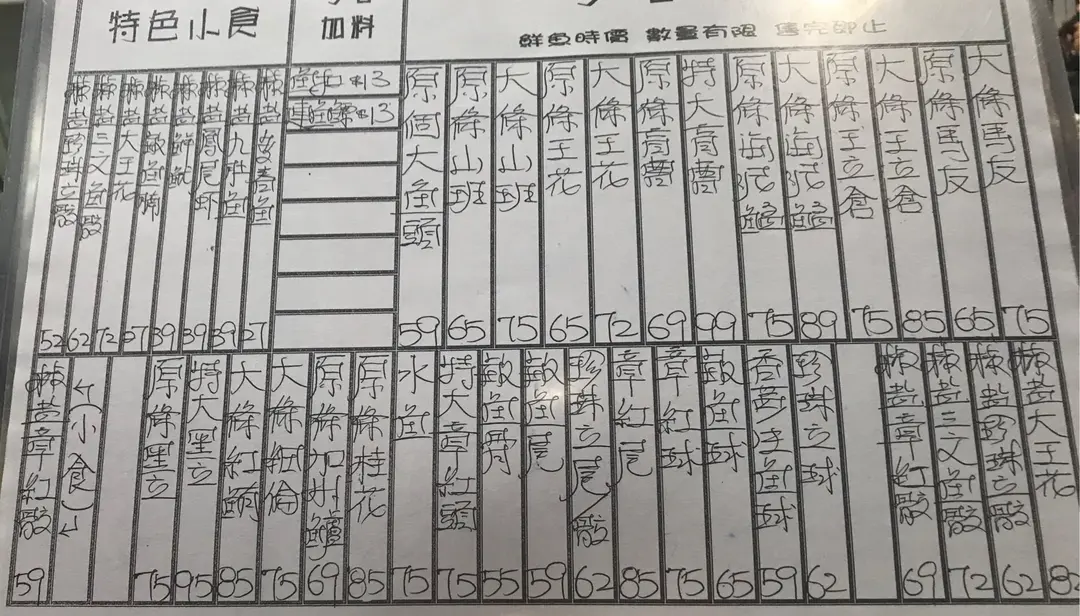 特色小食
加料
鮮魚時價 數量有限 售完即止
大條馬友 75
原條馬友 65
大條王立倉 85
原條王立倉 75
大條海泥 89
原條海泥 75
特大 99
原條 69
大條王花 72
原條王花 65
大條山班 75
原條山班 65
原個大魚頭 59
$13
$13
椒盐 魚 27
椒盐九肚魚 39
椒盐鳳尾虾 39
椒盐鮮魷 39
椒盐鯇魚腩 57
椒盐大王花 72
椒盐三文魚骰 62
椒盐珍珠立骰 52
椒盐大王花 82
椒盐珍珠立骰 62
椒盐三文魚骰 72
椒盐章紅骰 69
珍珠立球 62
香 生魚球 59
鯇魚球 65
章紅球 75
章紅尾 85
珍珠立尾/骰 62
鯇魚尾 59
鯇魚骨 55
特大章紅頭 75
水魚 75
原條桂花 85
原條加州鱸 69
大條 倫 75
大條紅 85
特大黑立 95
原條黑立 75
(小食)
椒盐章紅骰 59